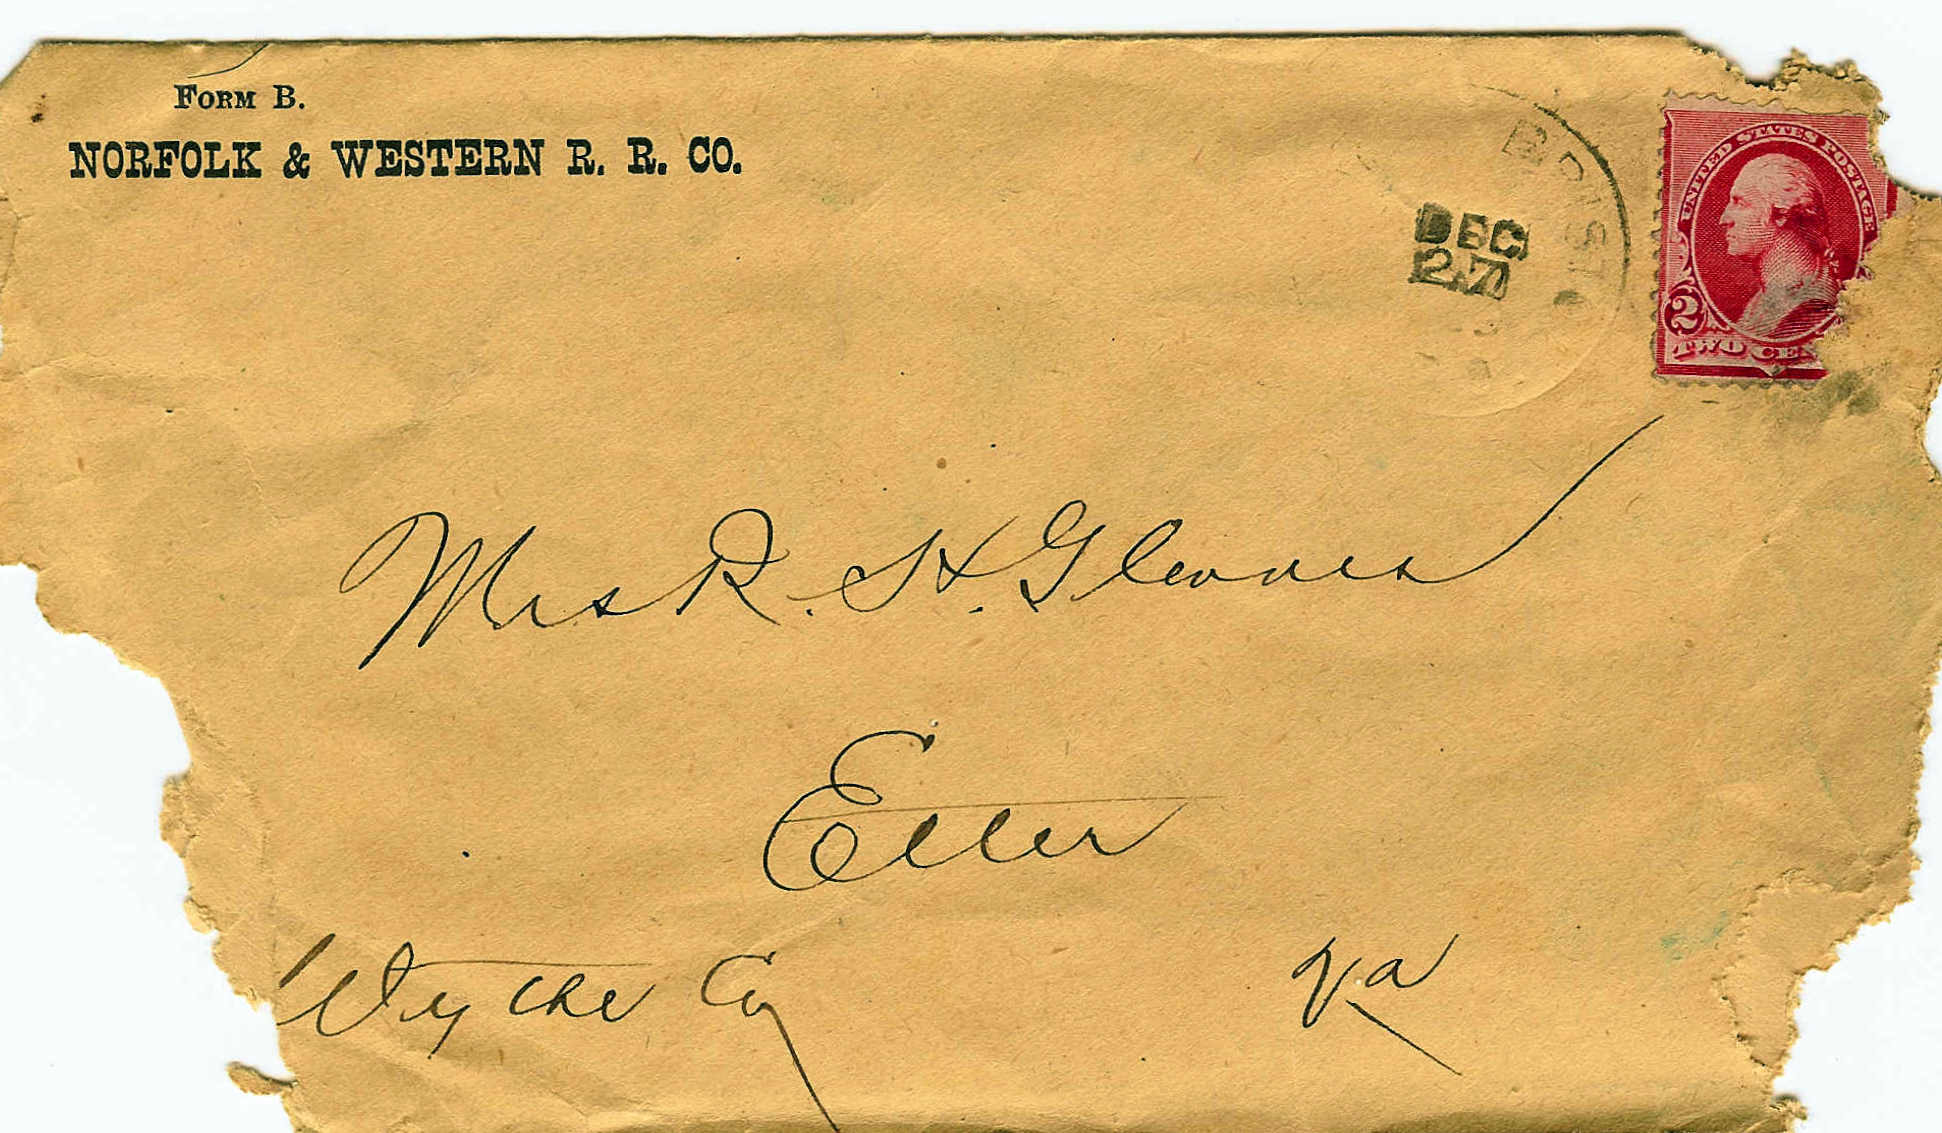 FORM B.
NORFOLK & WESTERN R. R. CO.
BRISTO
DEC
27
UNITED STATES POSTAGE
2
TWO CEN
Mrs R. H. Gleaves
Etter
Wythe Co
Va